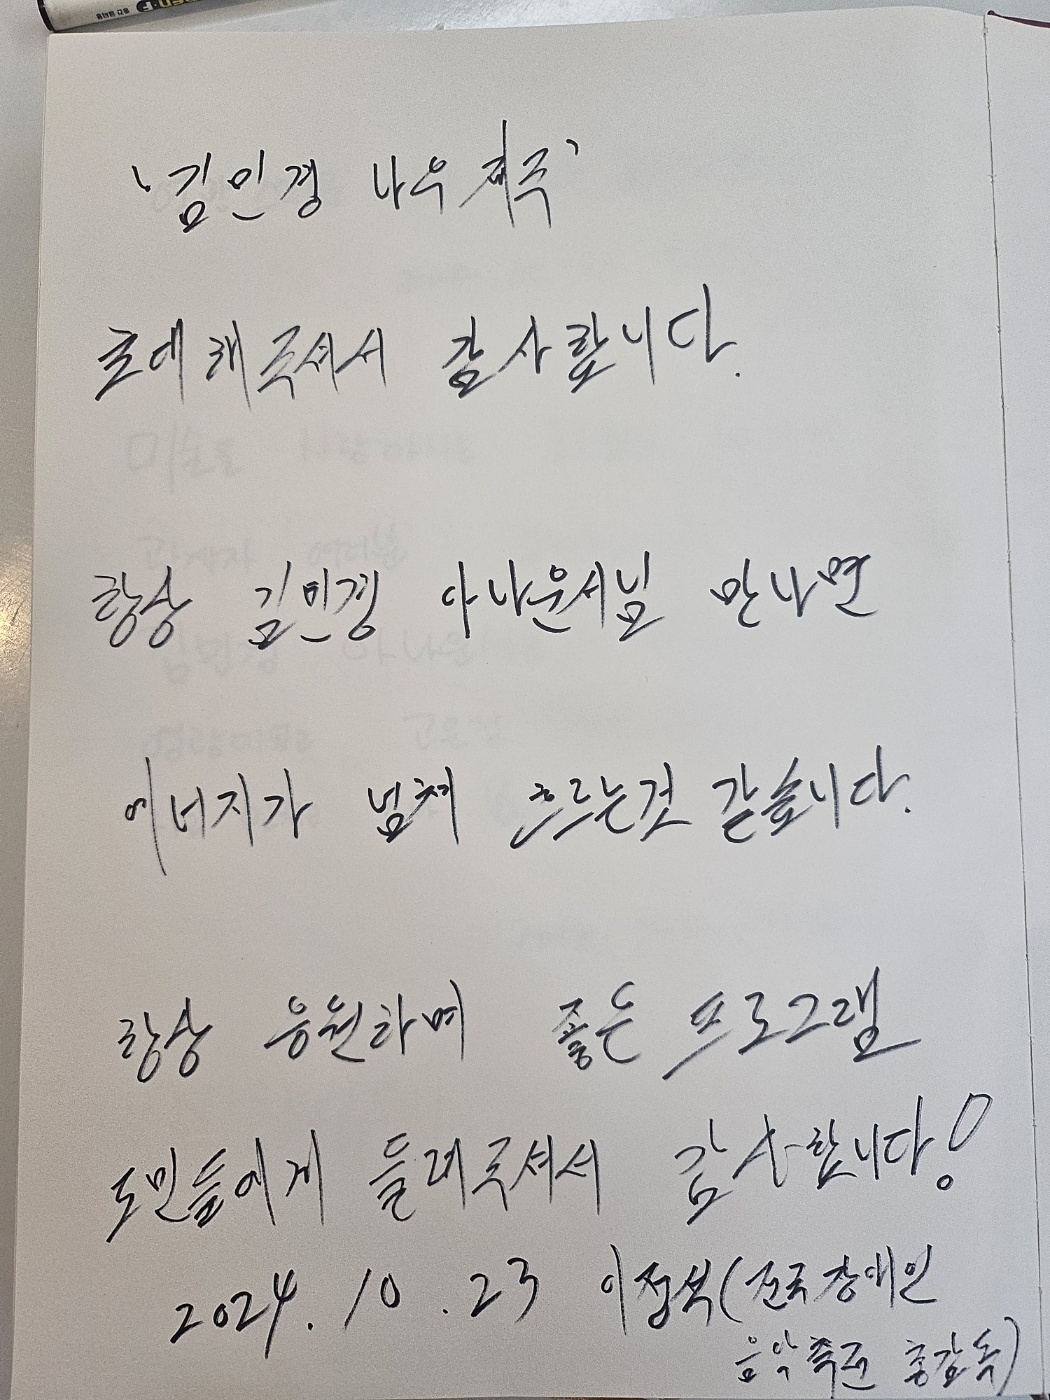 '김민경 나우제주'
초대해주셔서 감사합니다.
항상 김민경 아나운서님 만나면
에너지가 넘쳐 흐르는것 같습니다.
항상 응원하며 좋은 프로그램
도민들에게 들려주셔서 감사합니다!
2024. 10. 23 이정석(전국장애인
음악축전 총감독)